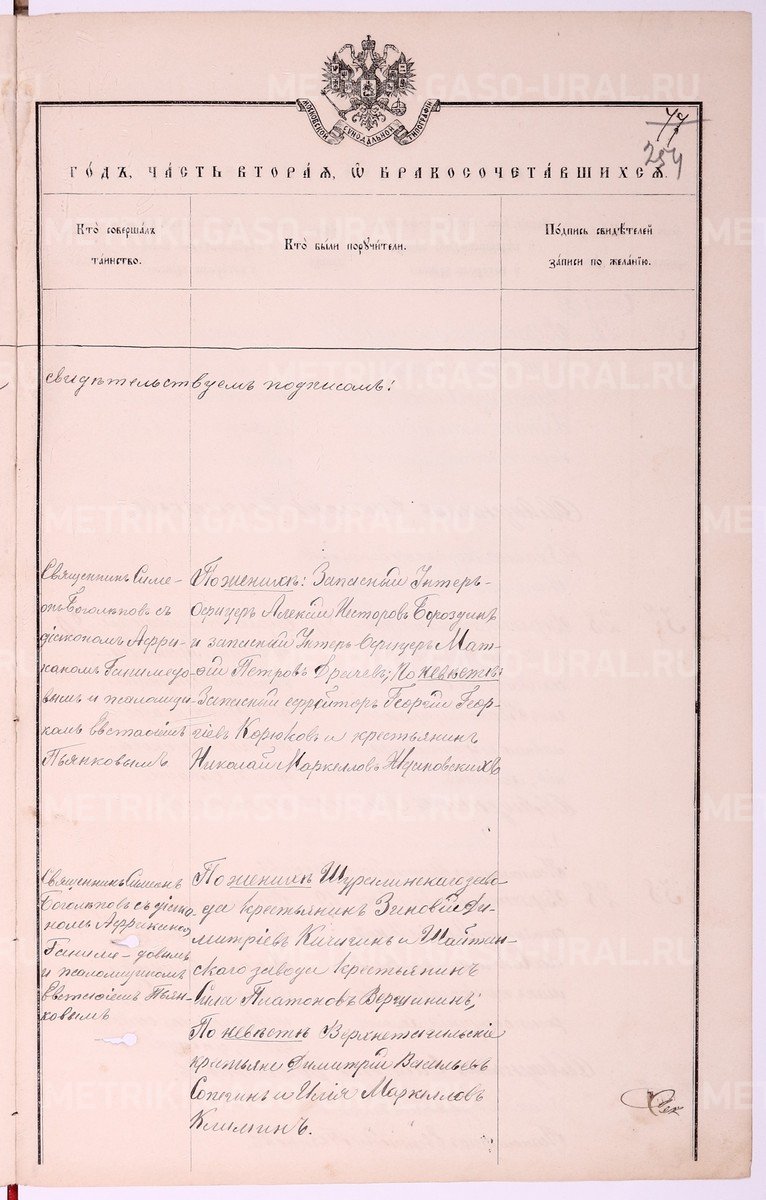 МОСКОВСКОЙ СѴНОДАЛЬНОЙ ТИПОГРАФІИ
254
ГОДЪ, ЧАСТЬ ВТОРАЯ, Ѡ БРАКОСОЧЕТАВШИХСЯ.
Кто совершалъ
таинство.
Кто были поручители.
Подпись свидѣтелей
записи по желанію.
свидѣтельствуемъ подписомъ:
Священникъ Симе-
онъ Боголѣповъ съ
діакономъ Афри-
каномъ Ганимедо-
вымъ и псаломщи-
комъ Евстаѳіемъ
Пьянковымъ
По женихѣ: Запасный Унтеръ-
Офицеръ Алексій Несторовъ Бороздинъ
и запасный Унтеръ Офицеръ Мат-
ѳій Петровъ Драчевъ; По невѣстѣ:
Запасный ефрейторъ Георгій Геор-
гіевъ Корюковъ и крестьянинъ
Николай Маркелловъ
Священникъ Симеонъ
Боголѣповъ съ діако-
номъ Африкано
Ганиме-довымъ
и псаломщикомъ
Евстаѳіемъ Пьян-
ковымъ
По женихѣ Шуралинскаго заво-
да крестьянинъ Зиновій Ди-
митріевъ Кичигинъ и Шайтан-
скаго завода крестьянинъ
Сила Платоновъ Вершининъ;
По невѣстѣ Верхнетагильскіе
крестьяне Димитрій Васильевъ
Сопегинъ и Илія Маркелловъ
Климинъ.
METRIKI.GASO-URAL.RU